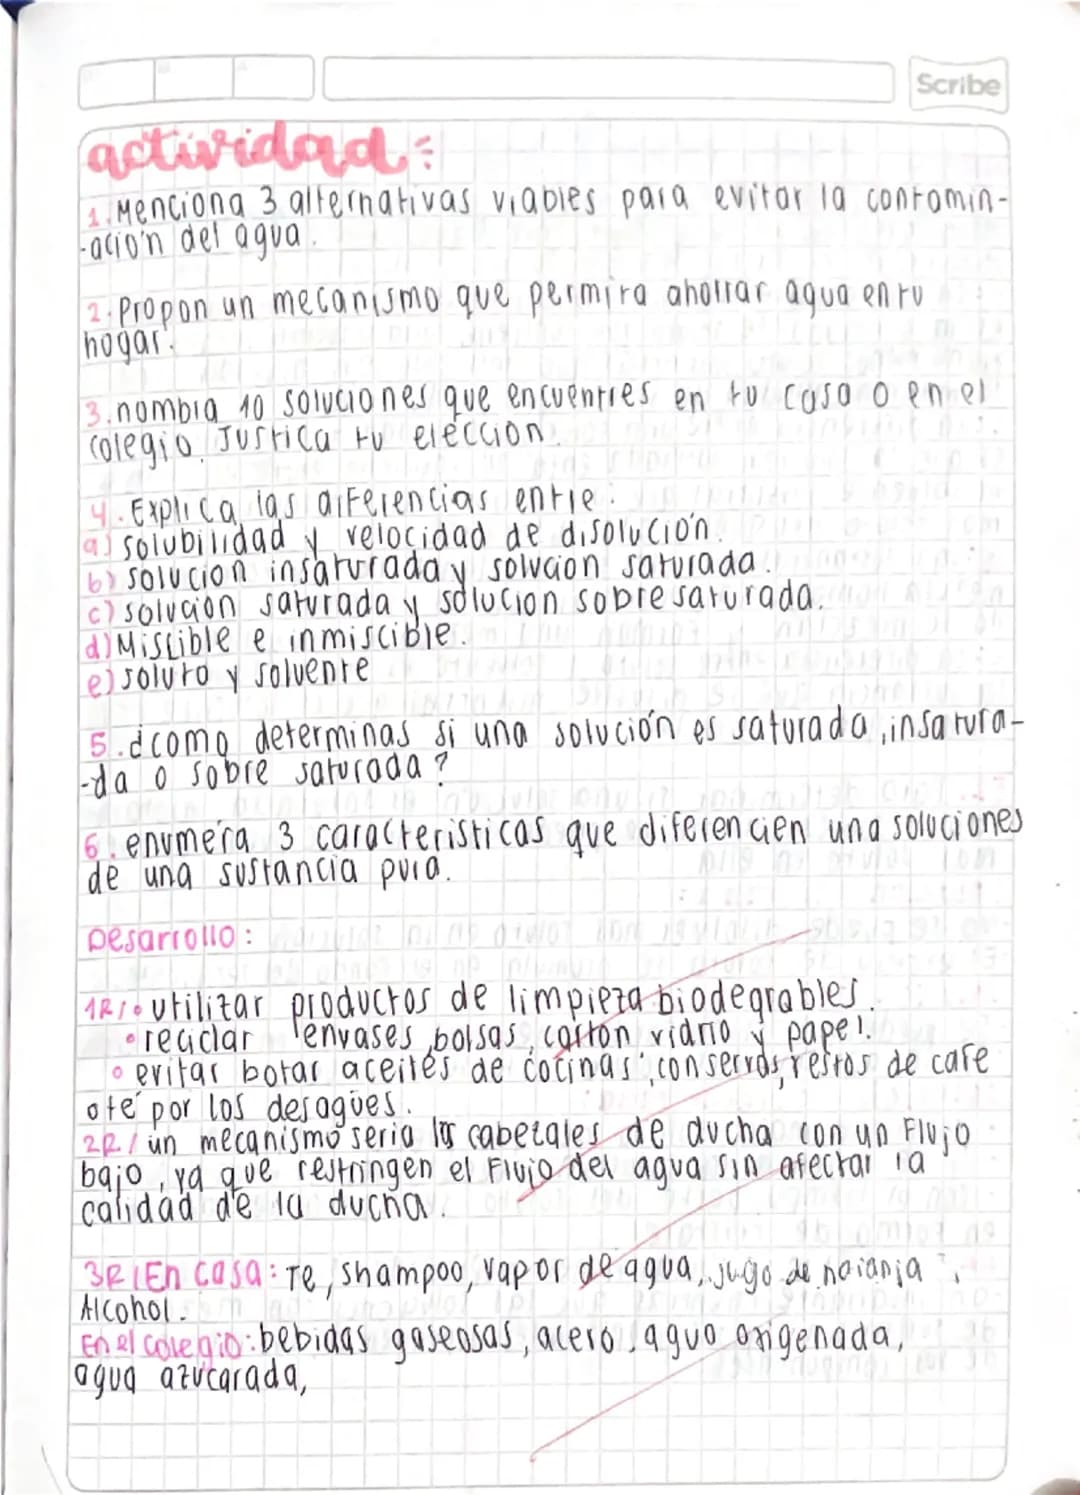 Scribe
actividad:
1. Menciona 3 alternativas viables para evitar la contamin-
-ación del agua.
2. Propon un mecanismo que permita ahorrar agua en tu
hogar.
3. nombra 10 soluciones que encuentres en tu casa o en el
colegio. Justica tu elección.
4. Explica las diferencias entre:
a) solubilidad y velocidad de disolución.
b) solucion insaturada y solucion saturada.
c) solucion saturada y solucion sobresaturada.
d) Miscible e inmiscible.
e) soluto y solvente
5. ¿como determinas si una solución es saturada, insatura-
-da o sobre saturada?
6. enumera 3 caracteristicas que diferencien una soluciones
de una sustancia pura.
Desarrollo:
1R/• utilizar productos de limpieza biodegrables.
• reciclar envases, bolsas, carton vidrio y papel.
• evitar botar aceites de cocinas, conservas, restos de cafe
oté por los desagües.
2R/ un mecanismo seria los cabezales de ducha con un Flujo
bajo, ya que restringen el Flujo del agua sin afectar la
calidad de la ducha.
3R/En casa: Te, shampoo, vapor de agua, jugo de naranja,
Alcohol.
En el colegio: bebidas gaseosas, acero, agua oxigenada,
agua azucarada,